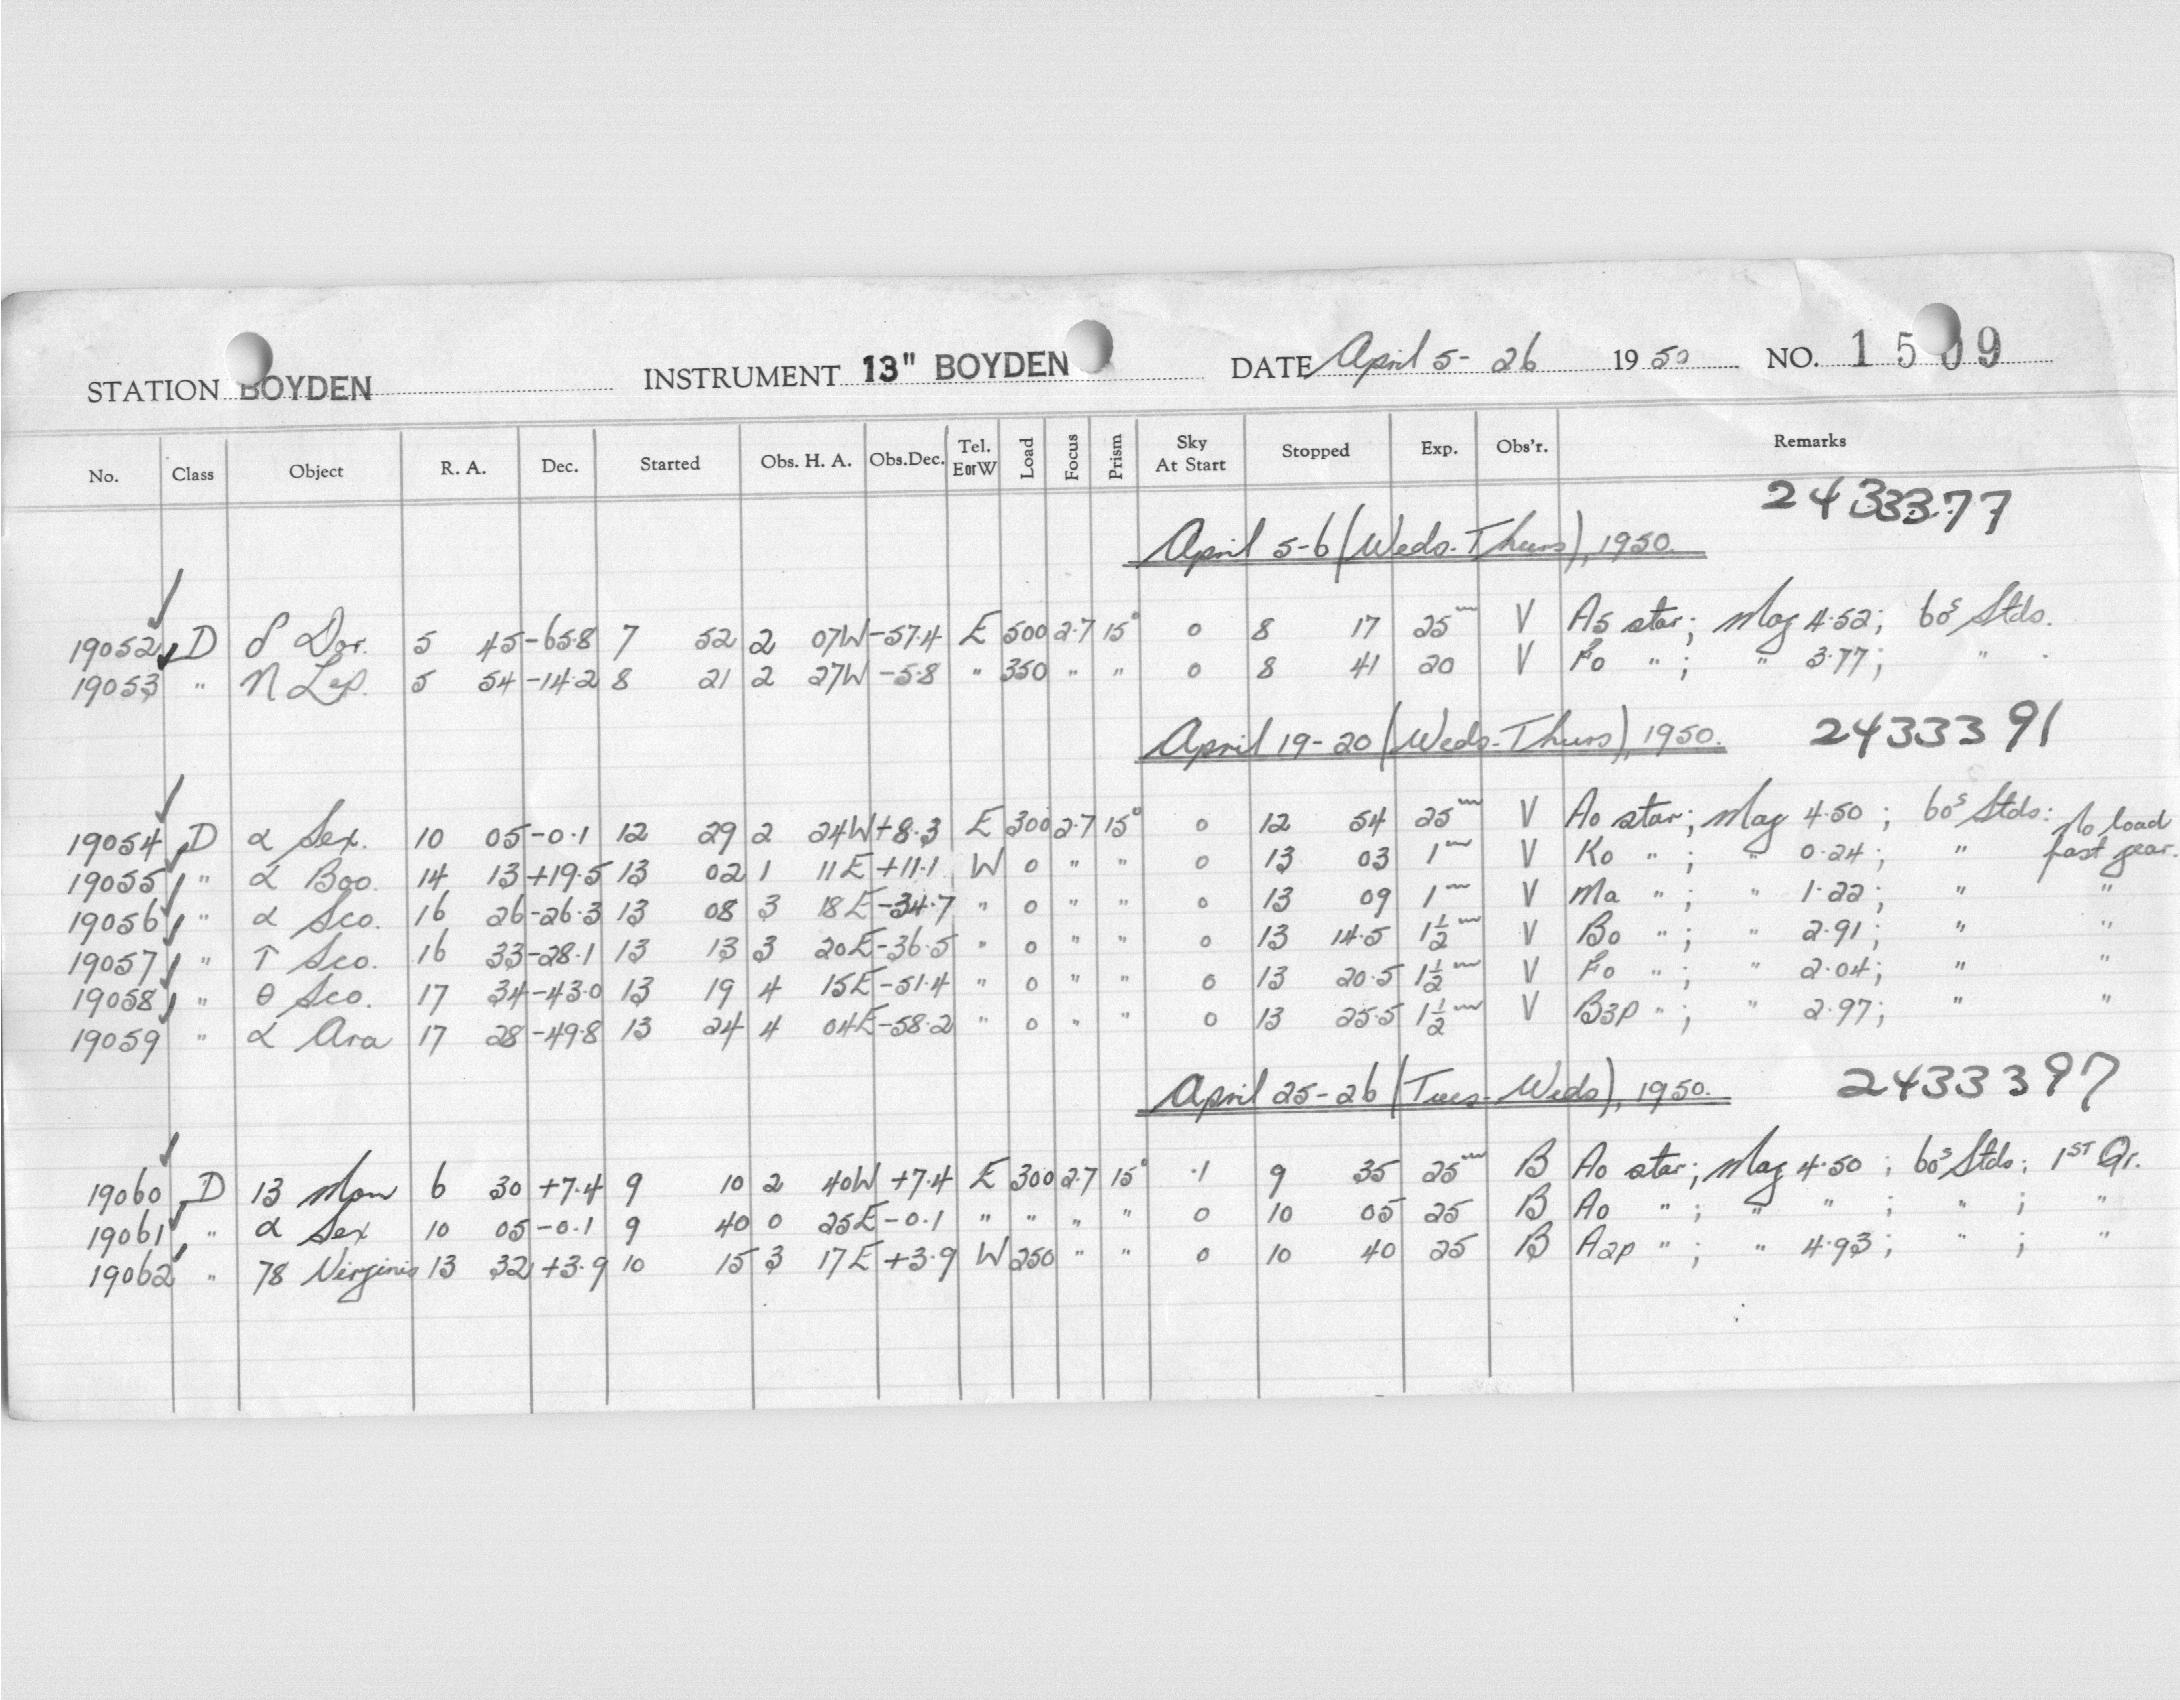 STATION BOYDEN INSTRUMENT 13" BOYDEN DATE April 5-26 1950 NO. 1509
No. Class Object R. A. Dec. Started Obs. H. A. Obs.Dec. Tel. EorW Load Focus Prism Sky At Start Stopped Exp. Obs'r. Remarks
2433377
April 5-6 (Weds-Thurs), 1950.
19052 D δ Dor. 5 45 -65.8 7 52 2 07W -57.4 E 500 2.7 15° 0 8 17 25m V A5 star; Mag 4.52; 60s Stds.
19053 " η Lep. 5 54 -14.2 8 21 2 27W -5.8 " 350 " " 0 8 41 20 V F0 " ; " 3.77; "
April 19-20 (Weds-Thurs), 1950. 2433391
19054 D α Sex. 10 05 -0.1 12 29 2 24W +8.3 E 300 2.7 15° 0 12 54 25m V A0 star; Mag 4.50 ; 60s Stds: No load
19055 " α Boo. 14 13 +19.5 13 02 1 11E +11.1 W 0 " " 0 13 03 1m V K0 " ; " 0.24; " fast gear.
19056 " α Sco. 16 26 -26.3 13 08 3 18E -34.7 " 0 " " 0 13 09 1m V Ma " ; " 1.22; " "
19057 " τ Sco. 16 33 -28.1 13 13 3 20E -36.5 " 0 " " 0 13 14.5 1½m V B0 " ; " 2.91; " "
19058 " θ Sco. 17 34 -43.0 13 19 4 15E -51.4 " 0 " " 0 13 20.5 1½m V F0 " ; " 2.04; " "
19059 " α Ara 17 28 -49.8 13 24 4 04E -58.2 " 0 " " 0 13 25.5 1½m V B3p " ; " 2.97; " "
April 25-26 (Tues-Weds), 1950. 2433397
19060 D 13 Mon 6 30 +7.4 9 10 2 40W +7.4 E 300 2.7 15° .1 9 35 25m B A0 star; Mag 4.50 ; 60s Stds; 1ST Qr.
19061 " α Sex 10 05 -0.1 9 40 0 25E -0.1 " " " " 0 10 05 25 B A0 " ; " " ; " ; "
19062 " 78 Virginis 13 32 +3.9 10 15 3 17E +3.9 W 250 " " 0 10 40 25 B A2p " ; " 4.93; " ; "